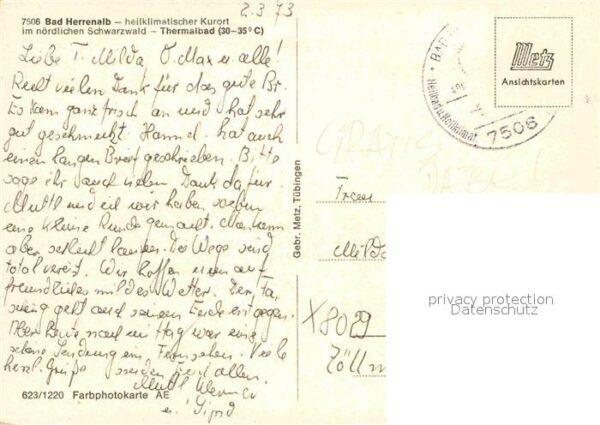 7506 Bad Herrenalb – heilklimatischer Kurort
im nördlichen Schwarzwald – Thermalbad (30–35° C)
2.3.73
Liebe T. Milda, O. Max u. alle!
Recht vielen Dank für das gute Br.
Es kam ganz frisch an und hat sehr
gut geschmeckt. Hannel. hat auch
einen langen Brief geschrieben. Bitte
sage ihr auch vielen Dank dafür.
Mutti und ich wir haben soeben
eine kleine Runde gemacht. Man kann
aber schlecht laufen. Die Wege sind
total vereist. Wir hoffen
freundliches mildes Wetter. Der Fa-
sching geht auch seinem Ende entgegen.
Aber heute nachmittag war eine
schöne Sendung im Fernsehen. Viele
herzl. Grüße senden Euch allen
Mutti
u.
623/1220 Farbphotokarte AE
Gebr. Metz, Tübingen
BAD
Heilbad u. Heilklimat
7506
Metz
Ansichtskarten
GRATIS
Frau
Milda
X8029
Zöllm
privacy protection
Datenschutz